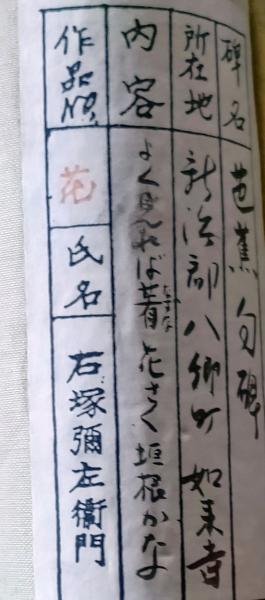 碑名 芭蕉句碑
所在地 新治郡八郷町 如来寺
内容 よく見れば薺花さく垣根かな
なずな
作品No. 花 氏名 石塚彌左衛門